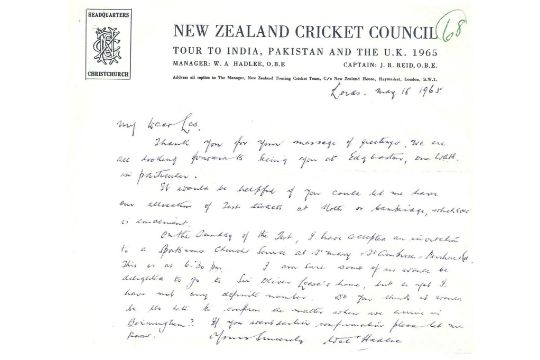 HEADQUARTERS
CHRISTCHURCH
68
NEW ZEALAND CRICKET COUNCIL
TOUR TO INDIA, PAKISTAN AND THE U.K. 1965
MANAGER: W. A HADLEE, O.B.E    CAPTAIN: J. R. REID, O.B.E.
Address all replies to The Manager, New Zealand Touring Cricket Team, C/o New Zealand House, Haymarket, London, S.W.1.
Lords. May 16 1965
My Dear Les.
Thank you for your message of greetings. We are
all looking forward to seeing you at Edgbaston,
in particular.
It would be helpful if you could let me have
our allocation of Test tickets at Notts or Cambridge, whichever
is convenient.
On the Sunday of the Test, I have accepted an invitation
to a Sportsmans Church Service at St Mary & St Ambrose
This is at 6.30 pm. I am sure some of us would be
delighted to go to Sir Oliver Leese's home, but as yet I
have not any definite number. Do you think it would
be too late to confirm the matter when we arrive in
Birmingham? If you want earlier confirmation please let me
know. Yours Sincerely Walt Hadlee